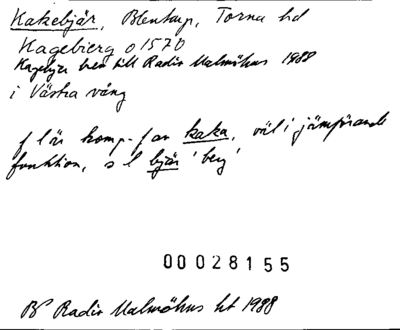 Kakebjär, Blentarp, Torna hd
Hageberg o 1570
Kagebjer brev till Radio Malmöhus 1988
i Västra vång
f l är komp. f av kaka, väl i jämförande
funktion, o l bjär 'berg'
00028155
BP Radio Malmöhus ht 1988